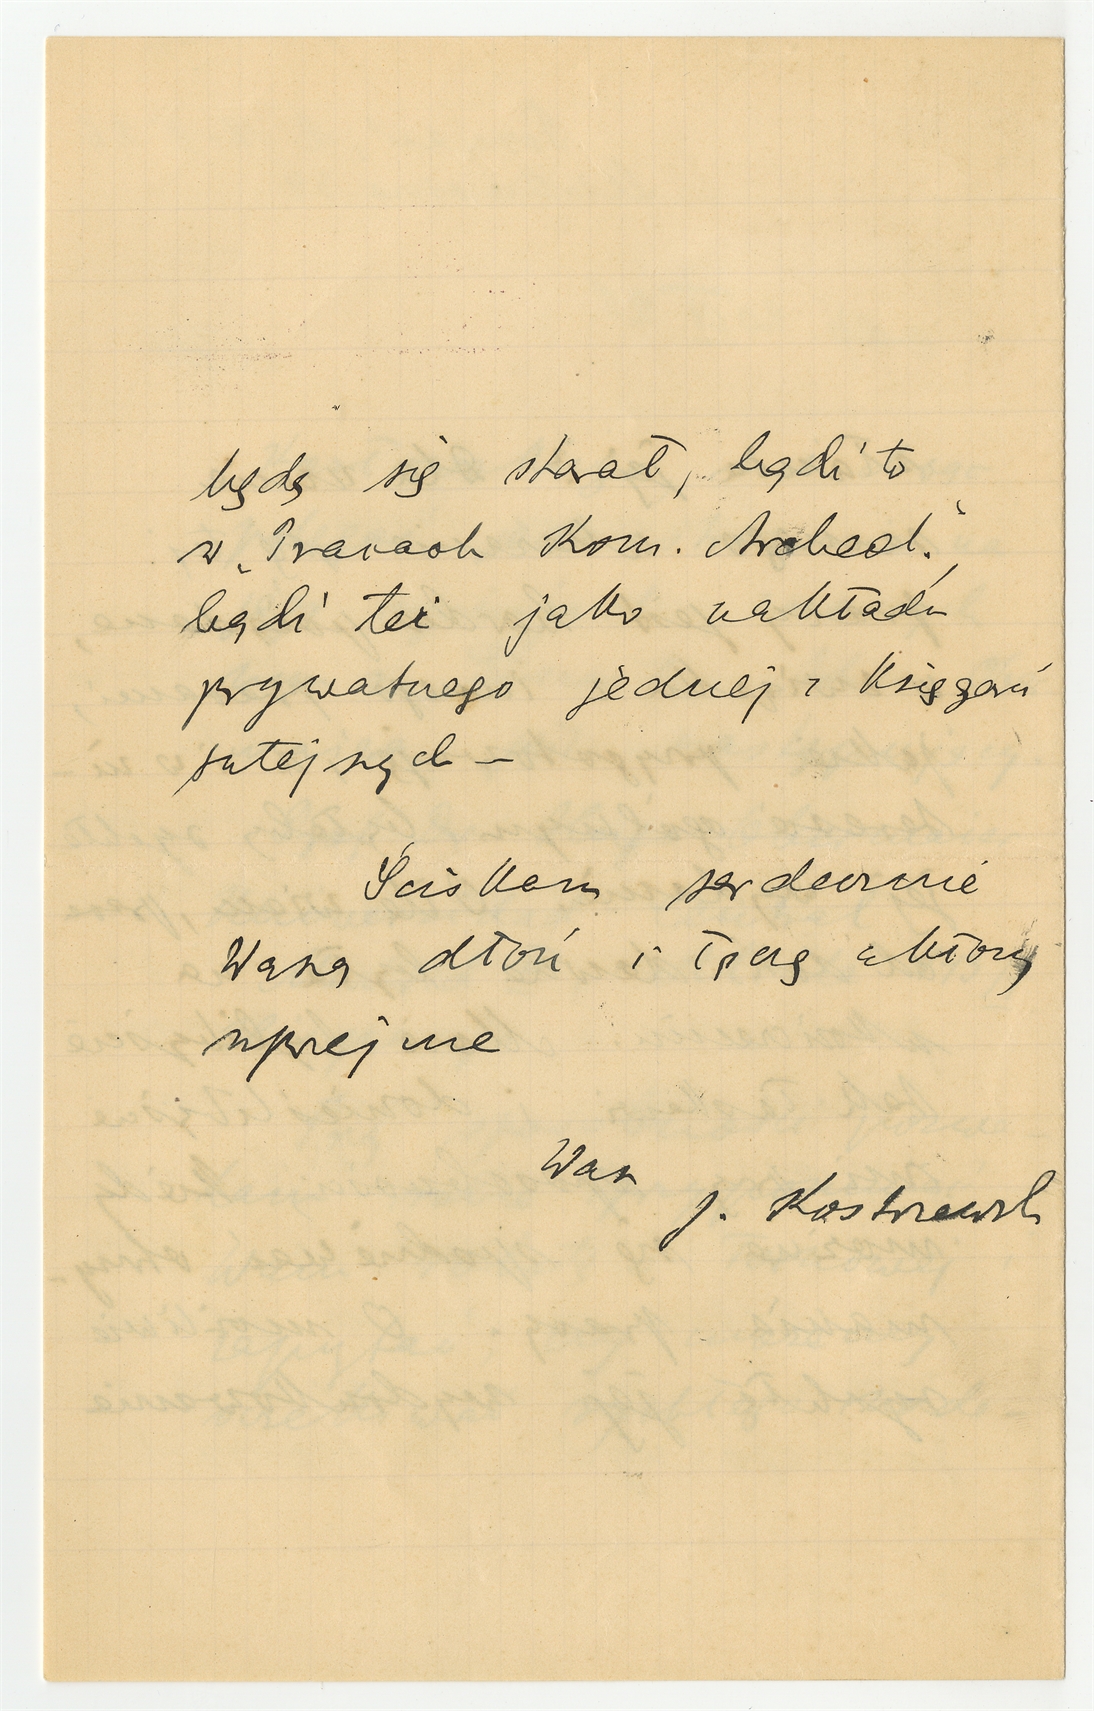 będę się starał, bądź to
w „Pracach Kom. Archeol.”,
bądź też jako nakładu
prywatnego jednej z księgarń
tutejszych –
Ściskam serdecznie
Waszą dłoń i łączę ukłony
uprzejme
Wasz
J. Kostrzewski